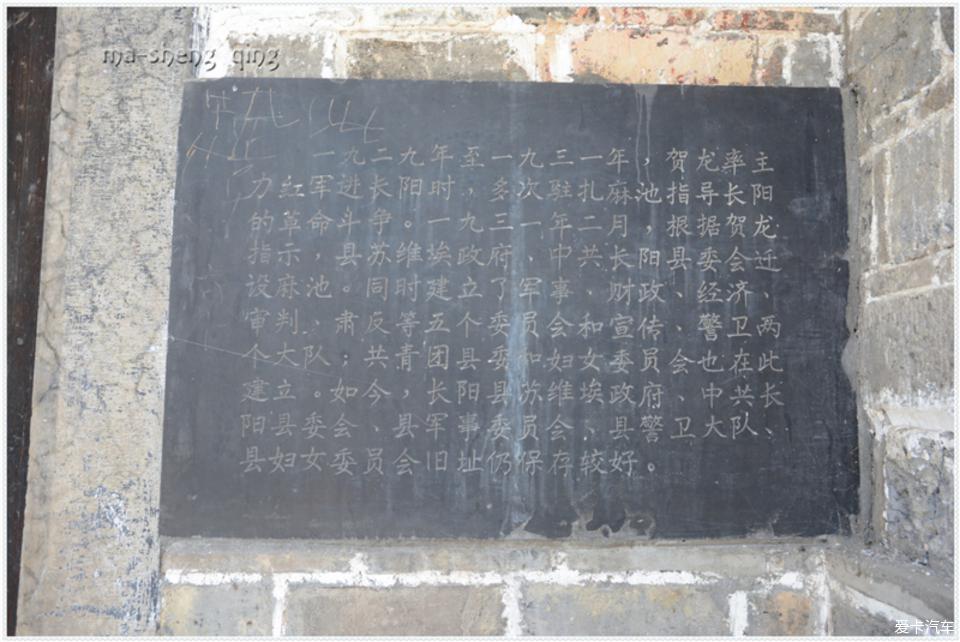 ma-sheng qing
一九二九年至一九三一年，贺龙率主
力红军进长阳时，多次驻扎麻池，指导长阳
的革命斗争。一九三一年二月，根据贺龙
指示，县苏维埃政府、中共长阳县委会迁
设麻池。同时建立了军事、财政、经济、
审判、肃反等五个委员会和宣传、警卫两
个大队；共青团县委和妇女委员会也在此
建立。如今，长阳县苏维埃政府、中共长
阳县委会、县军事委员会、县警卫大队、
县妇女委员会旧址仍保存较好。
爱卡汽车